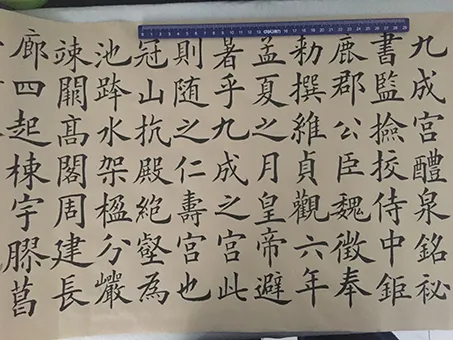 九成宮醴泉銘祕
書監撿挍侍中鉅
鹿郡公臣魏徵奉
勑撰維貞觀六年
孟夏之月皇帝避
著乎九成之宮此
則随之仁壽宮也
冠山抗殿絶壑為
池跨水架楹分巖
竦闕髙閣周建長
廊四起棟宇膠葛